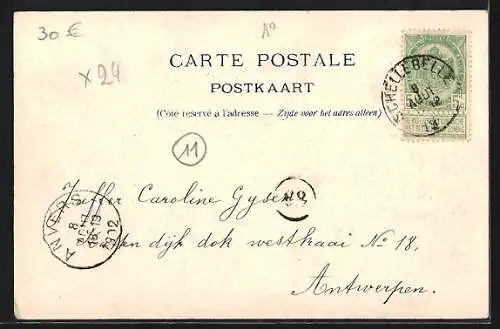 30 €
A°
x 24
CARTE POSTALE
POSTKAART
(Côté réservé à l'adresse — Zijde voor het adres alleen)
SCHELLEBELLE
8
AOUT
11
ANVERS
8
AOUT
18-19
1902
Juffer Caroline Gysens
dijk dok westkaai No 18,
Antwerpen.